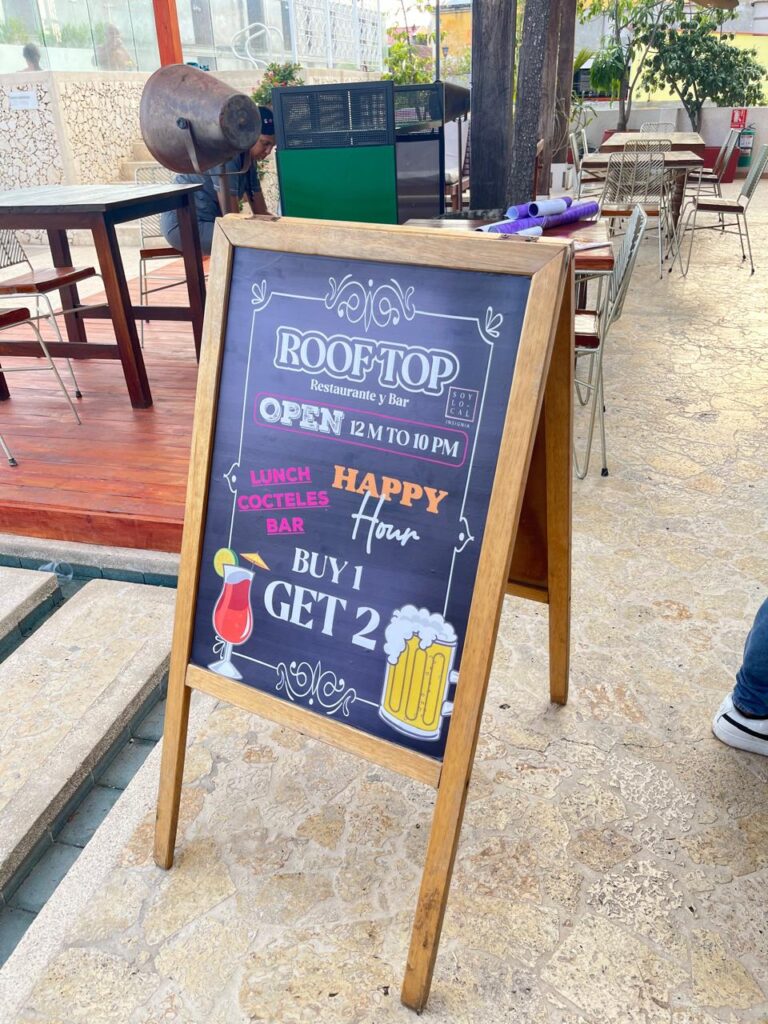 ROOFTOP
Restaurante y Bar
SOY
LO-
CAL
INSIGNIA
OPEN 12 M TO 10 PM
LUNCH
COCTELES
BAR
HAPPY
Hour
BUY 1
GET 2